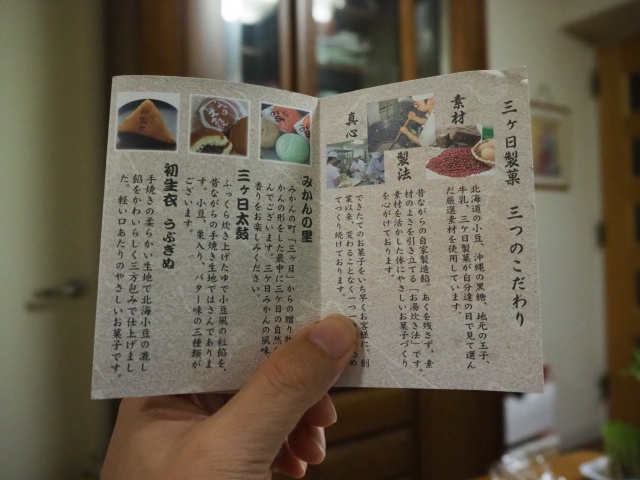 三ヶ日製菓 三つのこだわり
素材
北海道の小豆、沖縄の黒糖、地元の玉子、
牛乳、三ヶ日製菓が自分達の目で見て選ん
だ厳選素材を使用しています。
製法
昔ながらの自家製造餡、あくを残さず、素
材のよさを引き立てる「お湯炊き法」です。
素材を活かした体にやさしいお菓子づくり
を心がけております。
真心
できたてのお菓子をいち早くお客様に。創
業以来、変わることなく、一つ
てつくり続けております。
みかんの里
みかんの町「三ヶ日」からの贈り物
かんの形をした最中に三ヶ日の自然の
んでございます。三ヶ日みかんの風味
香りをお楽しみください。
三ヶ日太鼓
ふっくら炊き上げた中で小豆風の粒餡を、
昔ながらの手焼き生地ではさんでありま
す。小豆、栗入り、バター味の三種類が
ございます。
初生衣 うぶぎぬ
手焼きの柔らかい生地で北海小豆の漉し
餡をかわいらしく三方包みで仕上げまし
た。軽い口あたりのやさしいお菓子です。